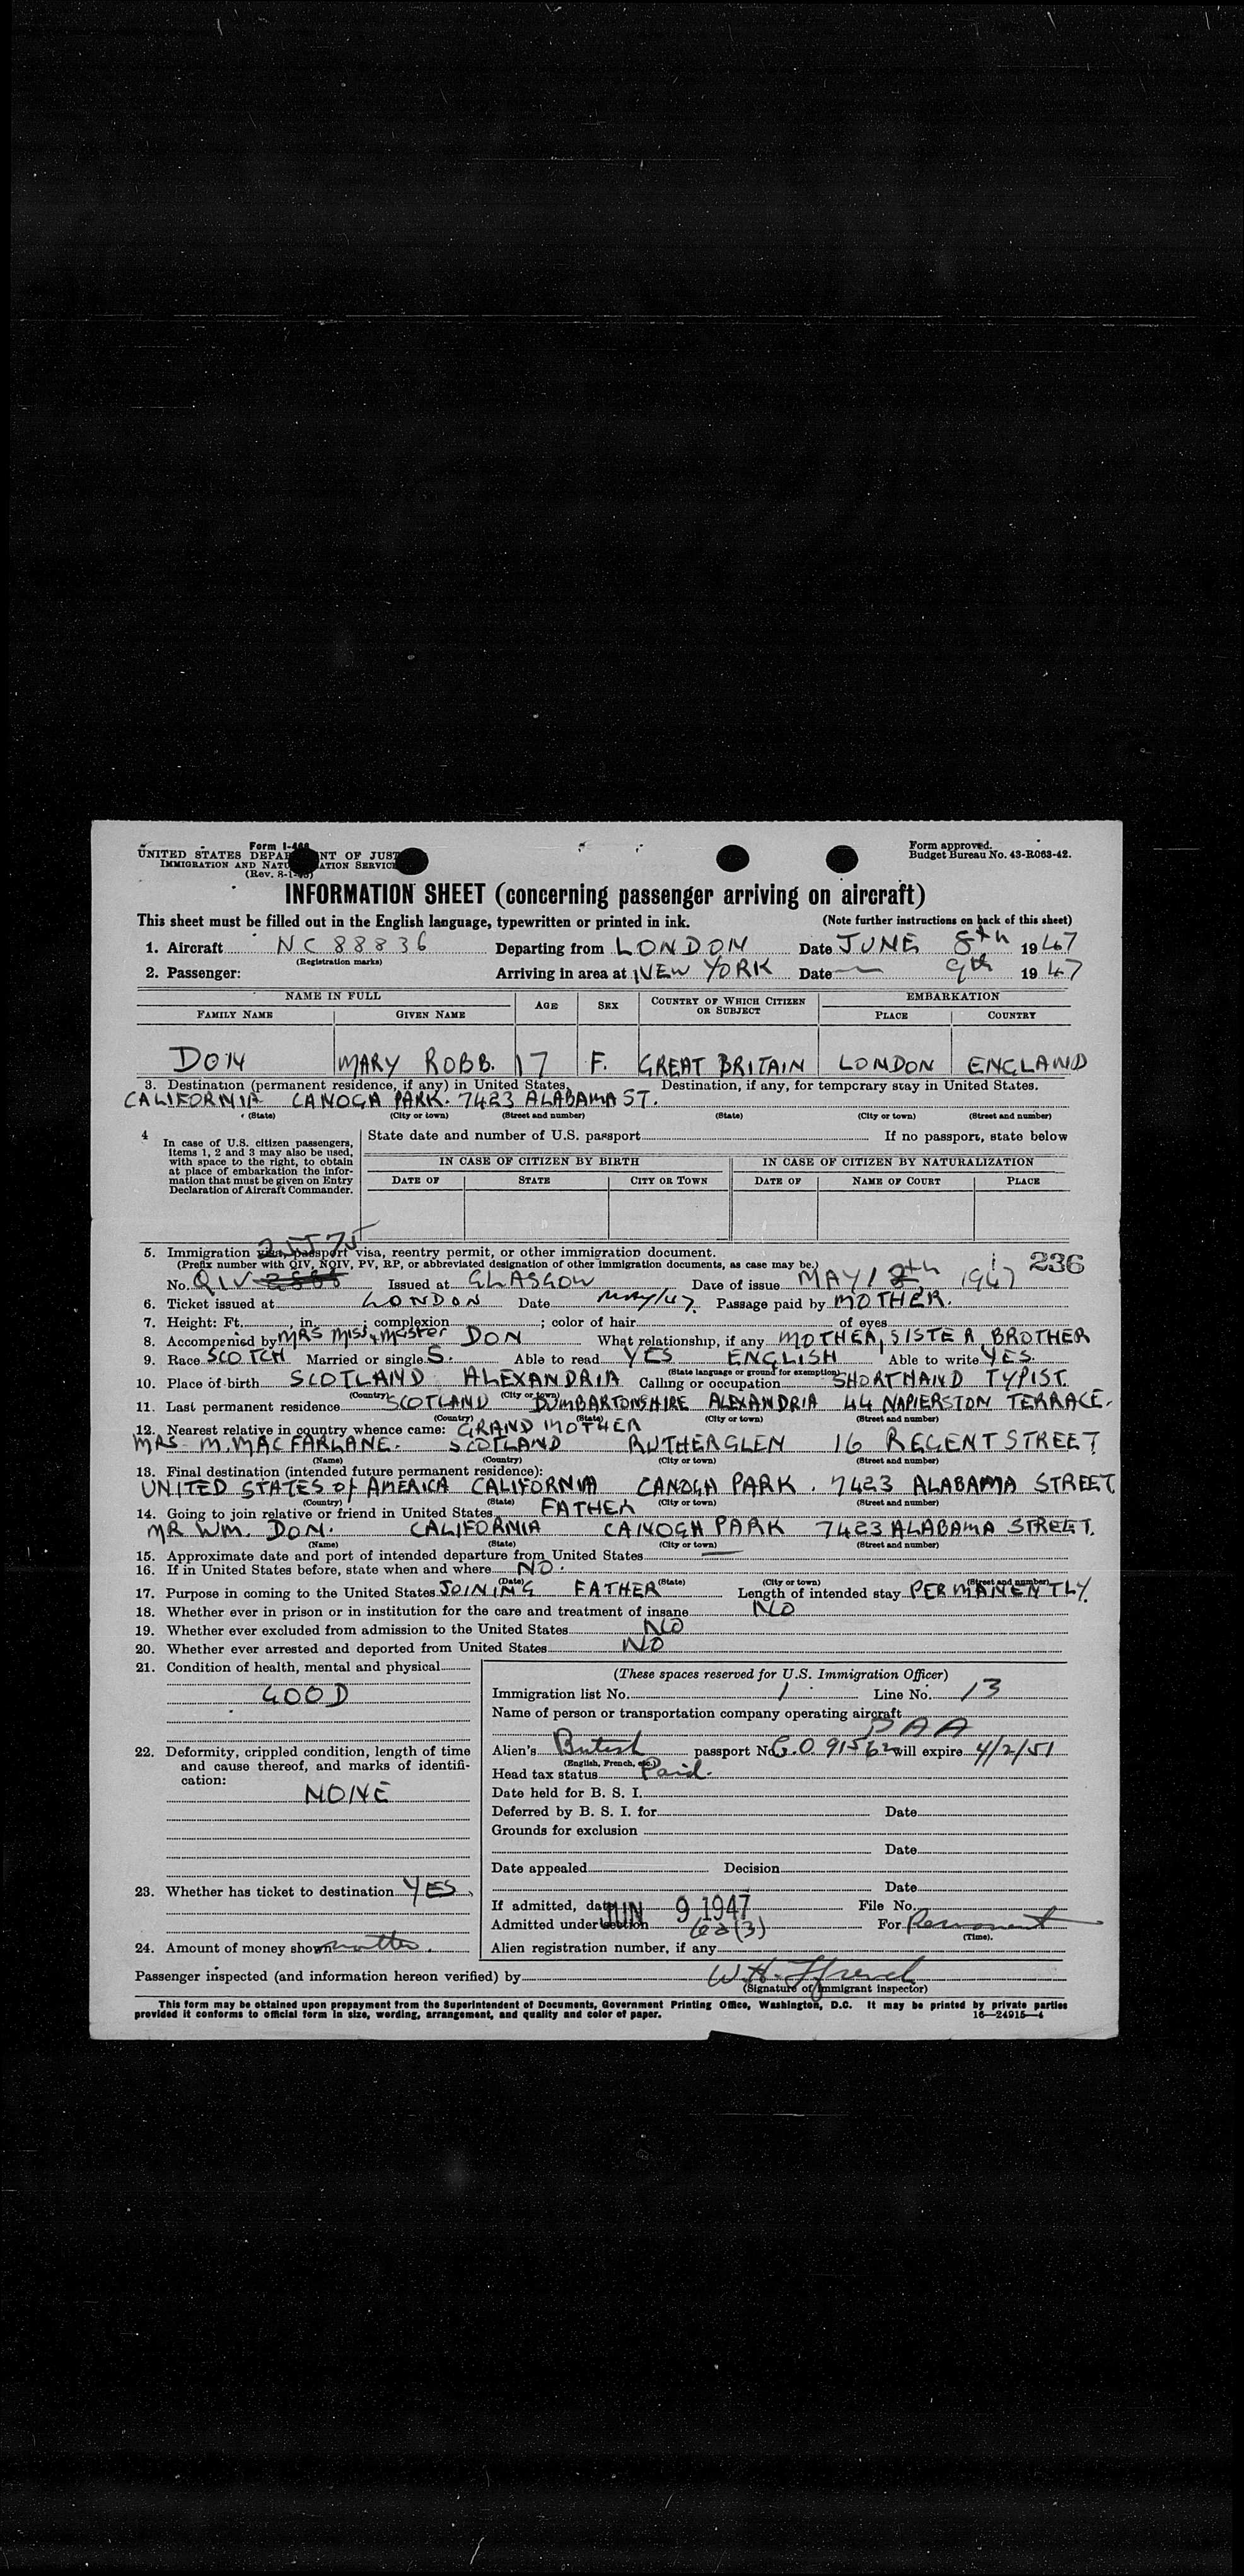 Form I-466
UNITED STATES DEPARTMENT OF JUSTICE
IMMIGRATION AND NATURALIZATION SERVICE
(Rev. 8-1-45)
Form approved.
Budget Bureau No. 43-R063-42.
INFORMATION SHEET (concerning passenger arriving on aircraft)
This sheet must be filled out in the English language, typewritten or printed in ink. (Note further instructions on back of this sheet)
1. Aircraft NC 88836 Departing from LONDON Date JUNE 8th 1947
(Registration marks)
2. Passenger: Arriving in area at NEW YORK Date 9th 1947
NAME IN FULL AGE SEX COUNTRY OF WHICH CITIZEN OR SUBJECT EMBARKATION
FAMILY NAME GIVEN NAME PLACE COUNTRY
DON MARY ROBB. 17 F. GREAT BRITAIN LONDON ENGLAND
3. Destination (permanent residence, if any) in United States. Destination, if any, for temporary stay in United States.
CALIFORNIA CANOGA PARK. 7423 ALABAMA ST.
(State) (City or town) (Street and number) (State) (City or town) (Street and number)
4 In case of U.S. citizen passengers, items 1, 2 and 3 may also be used, with space to the right, to obtain at place of embarkation the information that must be given on Entry Declaration of Aircraft Commander.
State date and number of U.S. passport If no passport, state below
IN CASE OF CITIZEN BY BIRTH IN CASE OF CITIZEN BY NATURALIZATION
DATE OF STATE CITY OR TOWN DATE OF NAME OF COURT PLACE
5. Immigration visa, passport visa, reentry permit, or other immigration document.
(Prefix number with QIV, NQIV, PV, RP, or abbreviated designation of other immigration documents, as case may be.) 236
No. QIV Issued at GLASGOW Date of issue MAY 1947
6. Ticket issued at LONDON Date May/47. Passage paid by MOTHER.
7. Height: Ft. , in. ; complexion ; color of hair of eyes
8. Accompanied by MRS Miss & Master DON What relationship, if any MOTHER, SISTER BROTHER
9. Race SCOTCH Married or single S. Able to read YES ENGLISH Able to write YES.
(State language or ground for exemption)
10. Place of birth SCOTLAND ALEXANDRIA Calling or occupation SHORTHAND TYPIST.
(Country) (City or town)
11. Last permanent residence SCOTLAND DUMBARTONSHIRE ALEXANDRIA 44 NAPIERSTON TERRACE.
(Country) (State) (City or town) (Street and number)
12. Nearest relative in country whence came: GRAND MOTHER
MRS M. MACFARLANE. SCOTLAND RUTHERGLEN 16 REGENT STREET
(Name) (Country) (City or town) (Street and number)
13. Final destination (intended future permanent residence):
UNITED STATES OF AMERICA CALIFORNIA CANOGA PARK. 7423 ALABAMA STREET
(Country) (State) (City or town) (Street and number)
14. Going to join relative or friend in United States FATHER
MR WM. DON. CALIFORNIA CANOGA PARK 7423 ALABAMA STREET.
(Name) (State) (City or town) (Street and number)
15. Approximate date and port of intended departure from United States
16. If in United States before, state when and where NO.
(Date) (State) (City or town) (Street and number)
17. Purpose in coming to the United States JOINING FATHER Length of intended stay PERMANENTLY.
18. Whether ever in prison or in institution for the care and treatment of insane NO
19. Whether ever excluded from admission to the United States NO
20. Whether ever arrested and deported from United States NO
21. Condition of health, mental and physical
GOOD
22. Deformity, crippled condition, length of time and cause thereof, and marks of identification:
NONE
23. Whether has ticket to destination YES
24. Amount of money shown mother.
(These spaces reserved for U.S. Immigration Officer)
Immigration list No. 1 Line No. 13
Name of person or transportation company operating aircraft
PAA
Alien's British passport No. C.091562 will expire 4/2/51
(English, French, etc.)
Head tax status Paid.
Date held for B. S. I.
Deferred by B. S. I. for Date
Grounds for exclusion
Date
Date appealed Decision
Date
If admitted, date JUN 9 1947 File No.
Admitted under section 6a(3) For Permanent
(Time).
Alien registration number, if any
Passenger inspected (and information hereon verified) by W.H. Ffrench
(Signature of immigrant inspector)
This form may be obtained upon prepayment from the Superintendent of Documents, Government Printing Office, Washington, D.C. It may be printed by private parties
provided it conforms to official form in size, wording, arrangement, and quality and color of paper. 16—24915—4